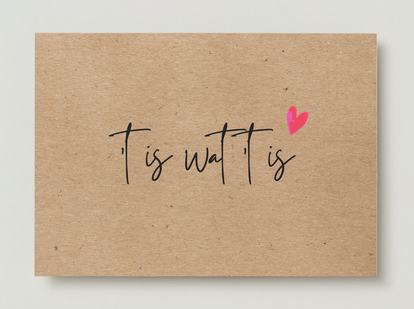 't is wat 't is